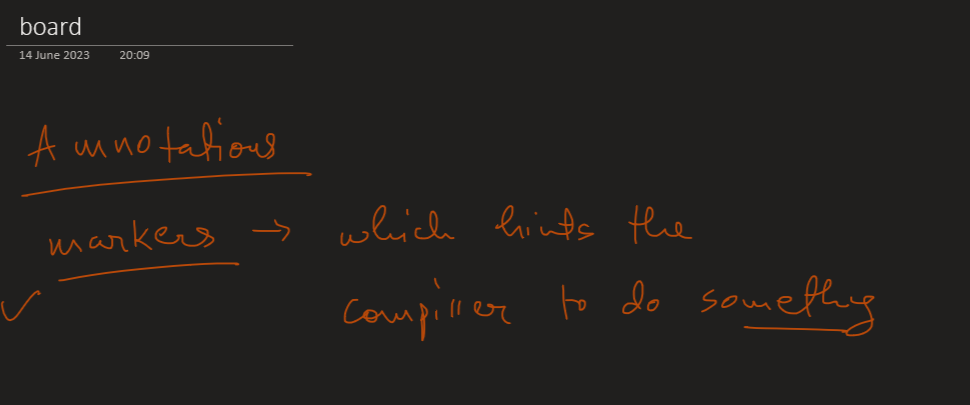 board
14 June 2023 20:09
Annotations
markers → which hints the
compiller to do something